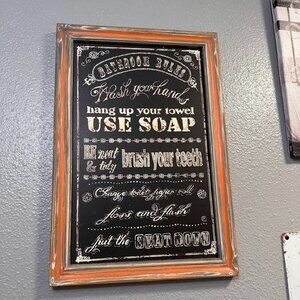 BATHROOM RULES
Wash your hands
hang up your towel
USE SOAP
BE neat
& tidy
brush your teeth
Change toilet paper roll
floss and flush
put the SEAT DOWN